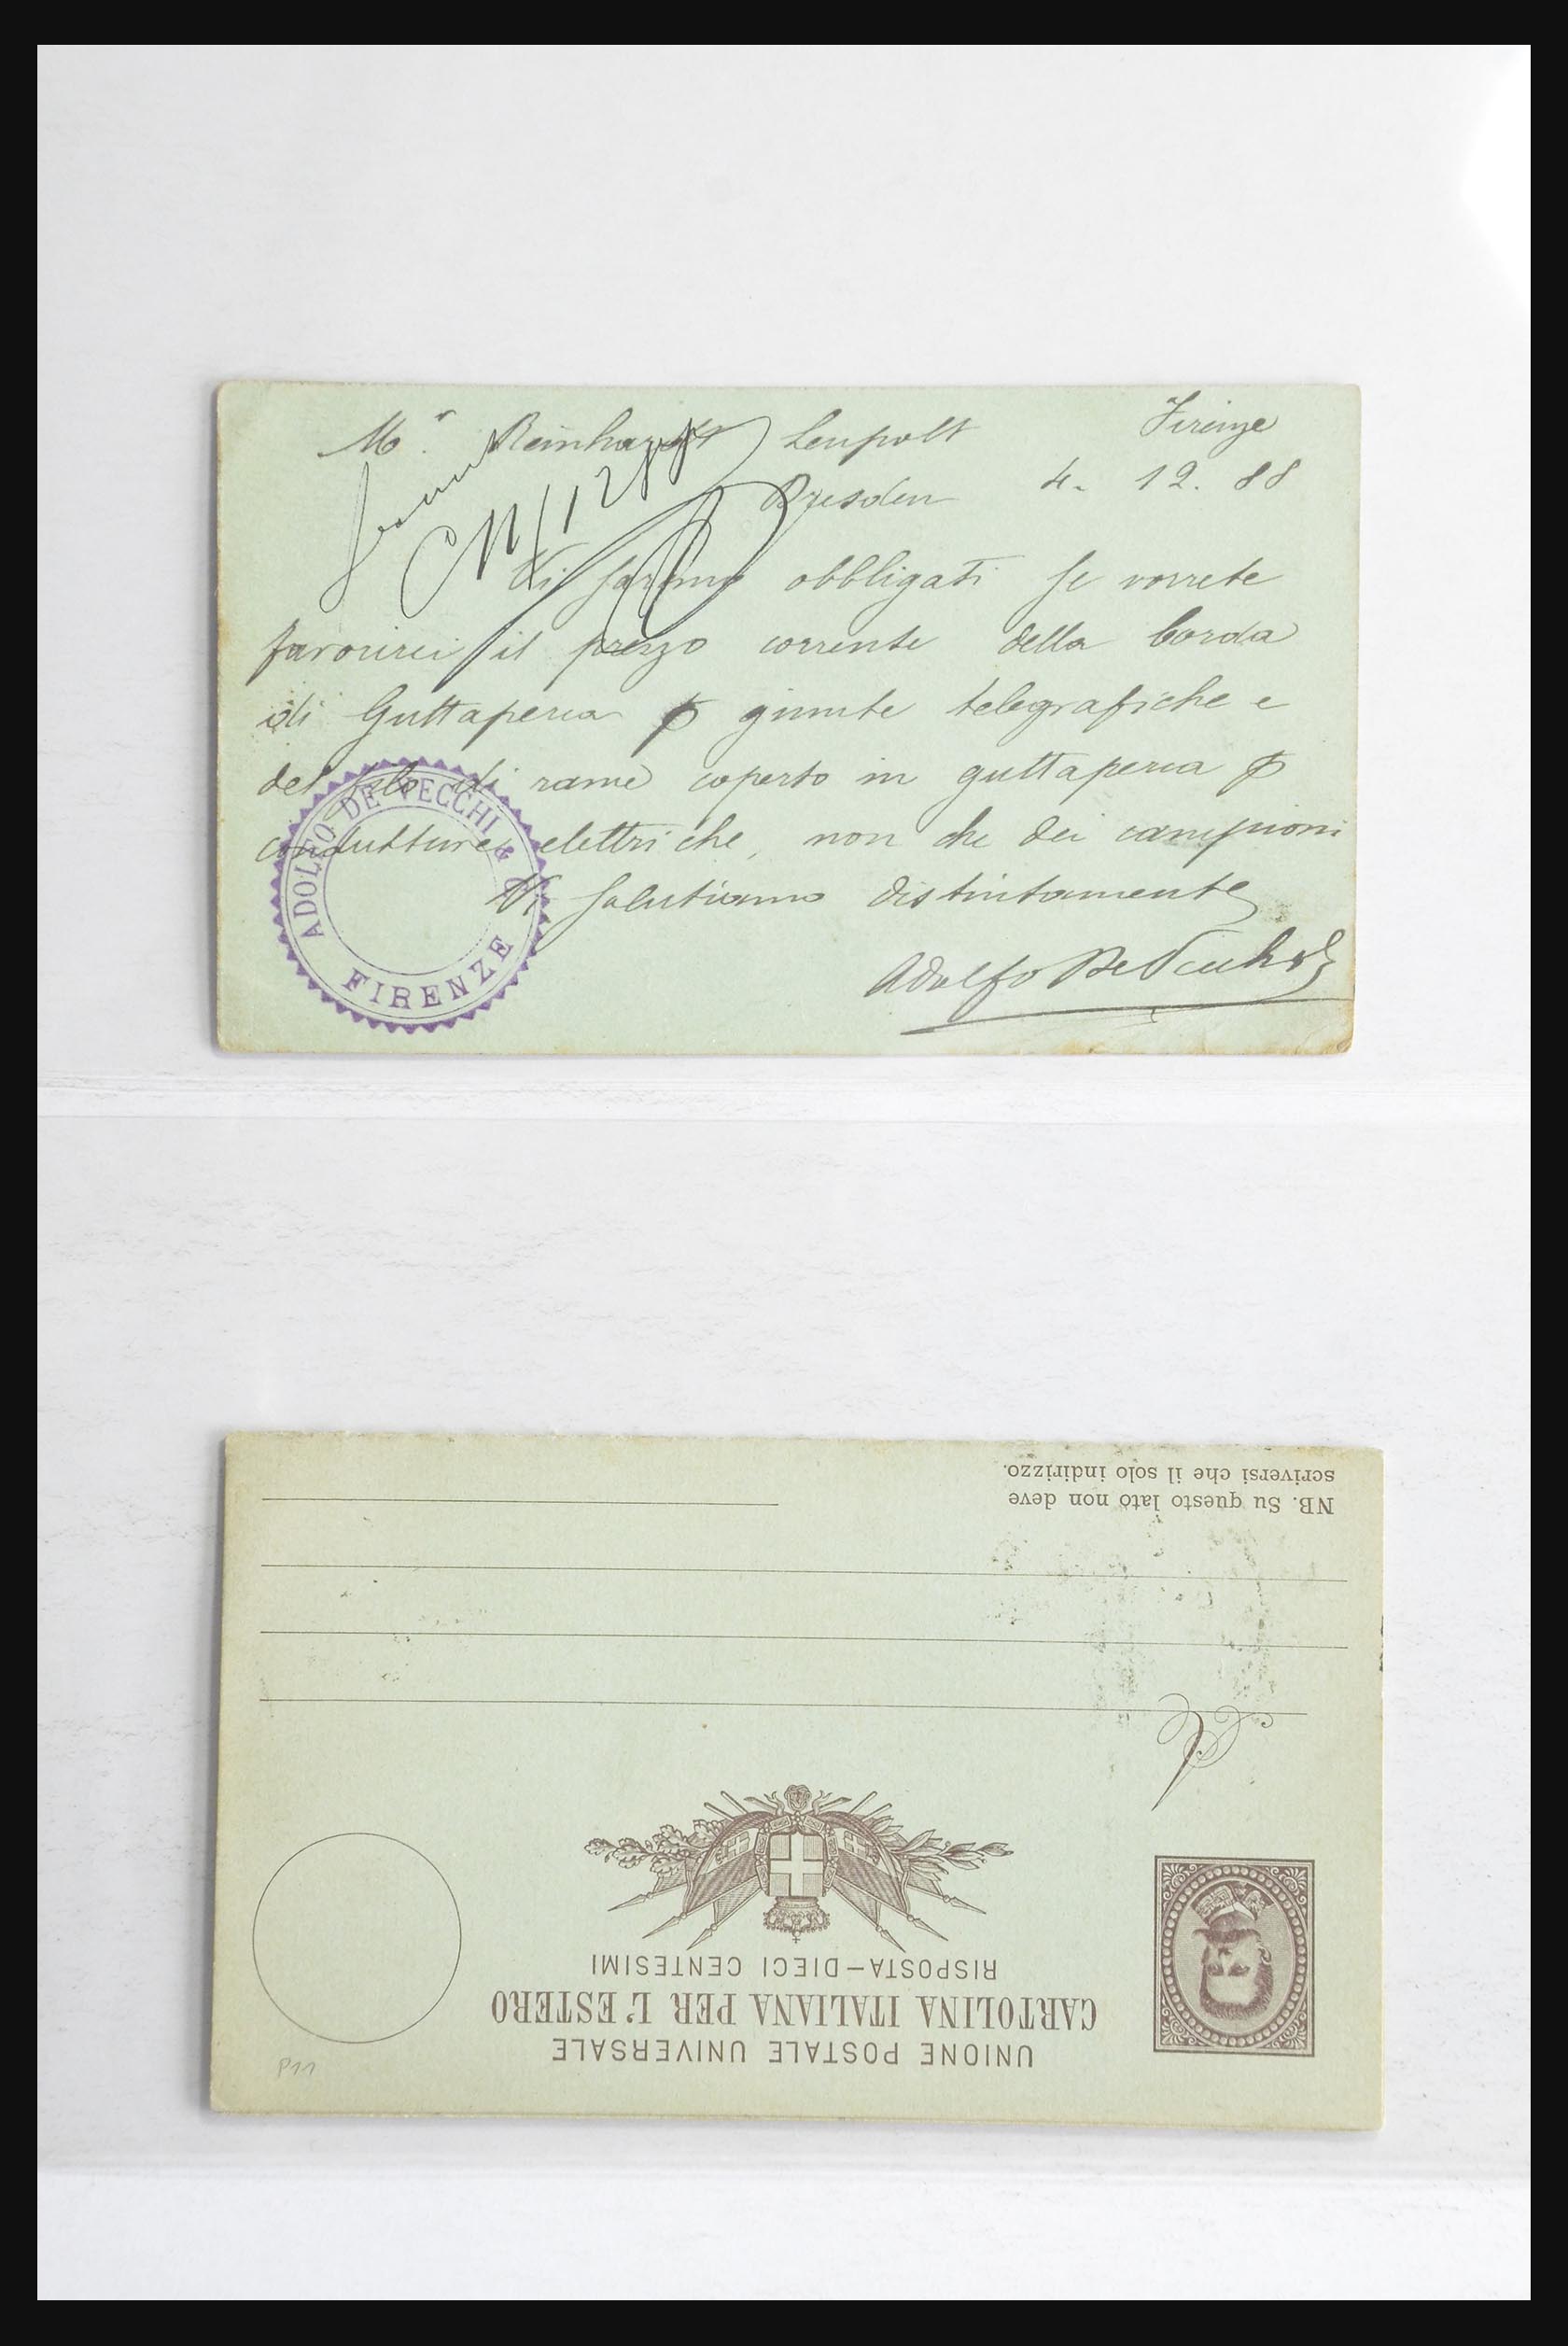 Mr. Reinhardt Leupolt
Firenze
Dresden 4. 12. 88
Vi saremo obbligati se vorrete
favorirci il prezzo corrente della corda
di Guttaperca p giunte telegrafiche e
del filo di rame coperto in guttaperca p
condutture elettriche, non che dei campioni
Vi salutiamo distintamente
Adolfo De Vecchi & C
ADOLFO DE VECCHI & C.
FIRENZE
UNIONE POSTALE UNIVERSALE
CARTOLINA ITALIANA PER L'ESTERO
RISPOSTA—DIECI CENTESIMI
NB. Su questo lato non deve
scriversi che il solo indirizzo.
P11